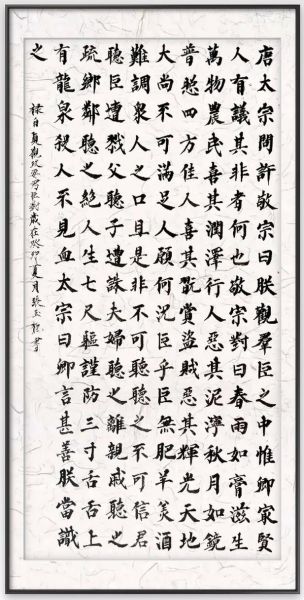 唐太宗問許敬宗曰朕觀羣臣之中惟卿㝡賢
人有議其非者何也敬宗對曰春雨如膏滋生
萬物農民喜其潤澤行人惡其泥濘秋月如鏡
普照四方佳人喜其翫賞盜賊惡其輝光天地
大尚不可滿足人願何況臣乎臣無肥羊羙酒
難調衆人之口且是非不可聽聽之不可信君
聽臣遭戮父聽子遭誅夫婦聽之離親戚聽之
疏鄉鄰聽之絕人生七尺軀謹防三寸舌舌上
有龍泉殺人不見血太宗曰卿言甚善朕當識
之
錄自貞觀政要君臣對歲在癸卯夏月張玉